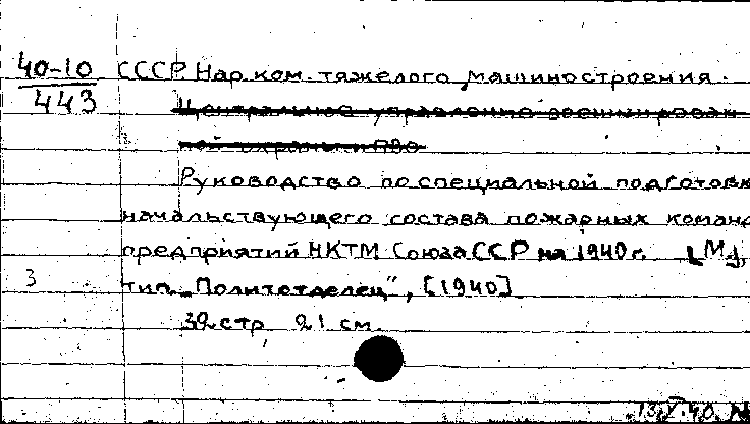 40-10
443
СССР. Нар. ком. тяжелого машиностроения.
Центральное управление военизирован
ной охраны и ПВО
Руководство по специальной подготовк
начальствующего состава пожарных команд
предприятий НКТМ Союза ССР на 1940 г. [М.],
3
тип. "Политотделец", [1940]
32 стр. 21 см.
13.V.40. №